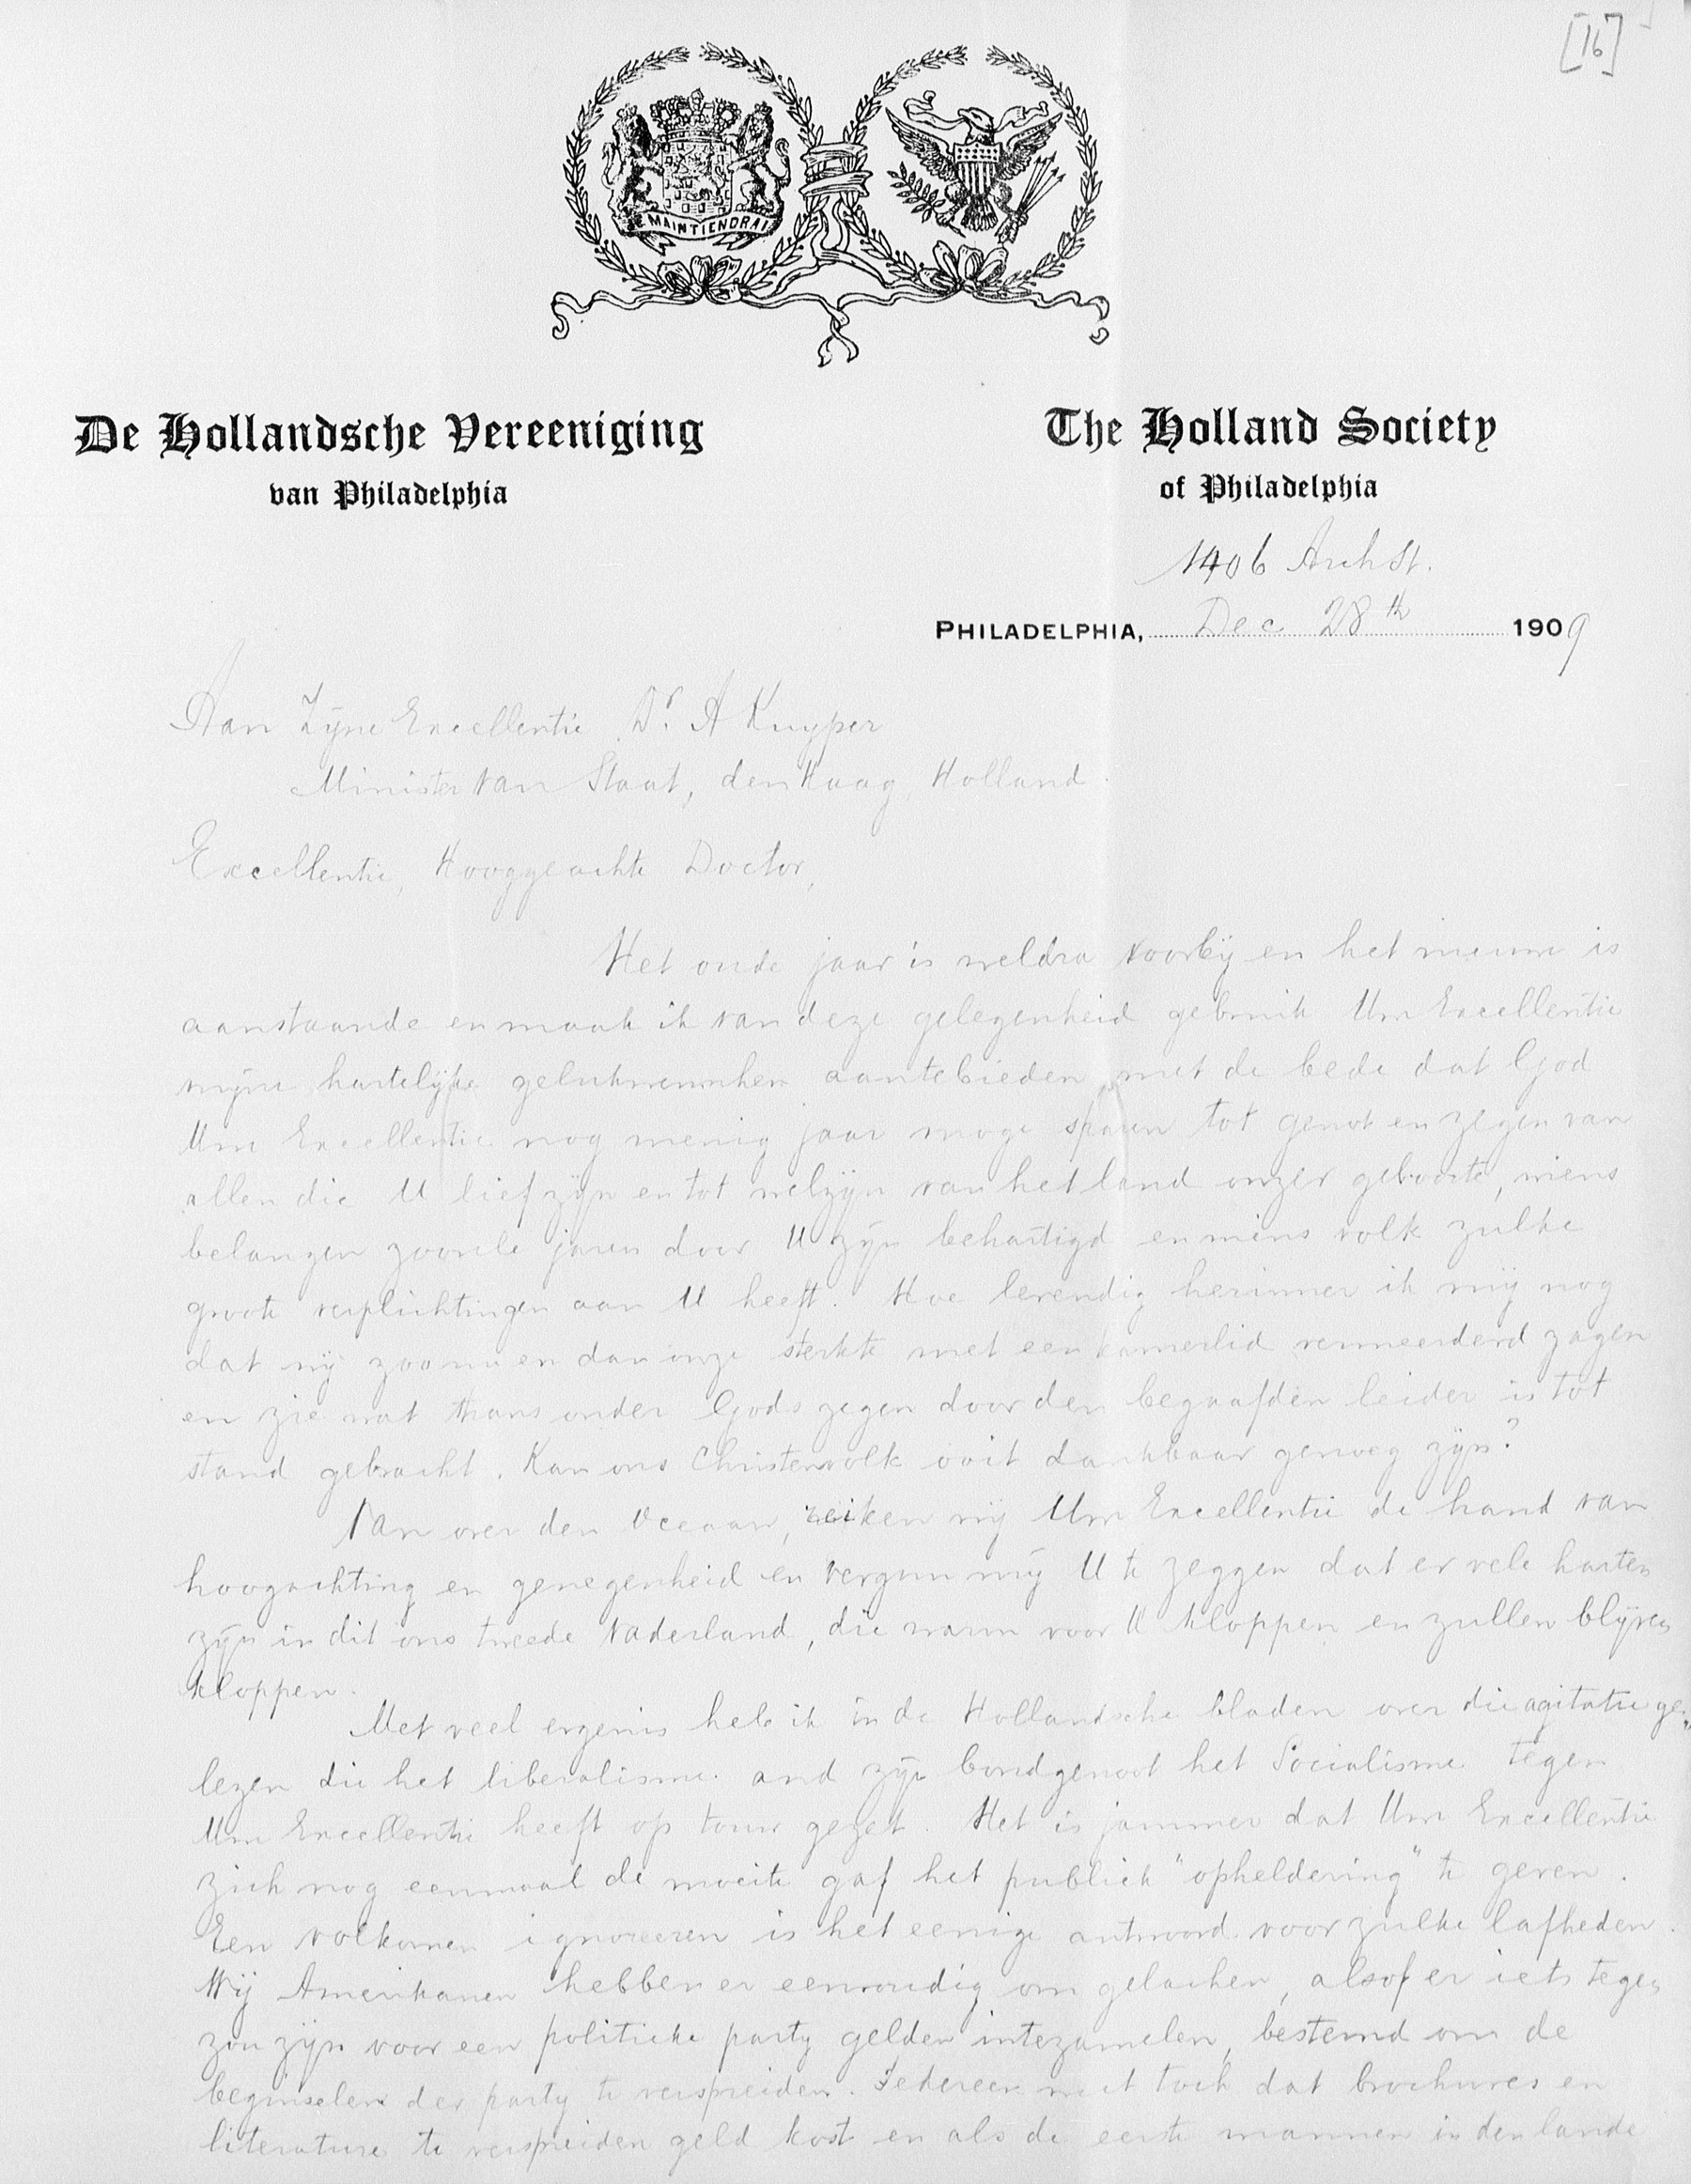 [16]
JE MAINTIENDRAI
De Hollandsche Vereeniging
van Philadelphia
The Holland Society
of Philadelphia
1406 Arch St.
PHILADELPHIA, Dec 28th 1909
Aan Zyne Excellentie Dr. A Kuyper
Minister van Staat, den Haag, Holland.
Excellentie, Hooggeachte Doctor,
Het oude jaar is weldra voorbij en het nieuwe is
aanstaande en maak ik van deze gelegenheid gebruik Uw Excellentie
mijne hartelijke gelukwenschen aantebieden, met de bede dat God
Uwe Excellentie nog menig jaar moge sparen tot genot en zegen van
allen die U lief zijn en tot welzijn van het land onzer geboorte, wiens
belangen zoovele jaren door U zijn behartigd en wiens volk zulke
groote verplichtingen aan U heeft. Hoe levendig herinner ik mij nog
dat wij zoo nu en dan onze sterkte met een kamerlid vermeerderd zagen
en zie wat thans onder Gods zegen door den begaafden leider is tot
stand gebracht. Kan ons Christenvolk ooit dankbaar genoeg zijn?
Van over den Oceaan, reiken wij Uw Excellentie de hand van
hoogachting en genegenheid en vergun mij U te zeggen dat er vele harten
zijn in dit ons tweede Vaderland, die warm voor U kloppen en zullen blijven
kloppen.
Met veel ergenis heb ik in de Hollandsche bladen over die agitatie ge„
lezen die het liberalisme and zijn bondgenoot het Socialisme tegen
Uw Excellentie heeft op touw gezet. Het is jammer dat Uw Excellentie
zich nog eenmaal de moeite gaf het publiek "opheldering" te geven.
Een volkomen ignoreeren is het eenige antwoord voor zulke lafheden.
Wij Amerikanen hebben er eenvoudig om gelachen, alsof er iets tegen
zou zijn voor een politieke party gelden intezamelen, bestemd om de
beginselen der party te verspreiden. Iedereen weet toch dat brochures en
literature te verspreiden geld kost en als de eerste mannen in den lande